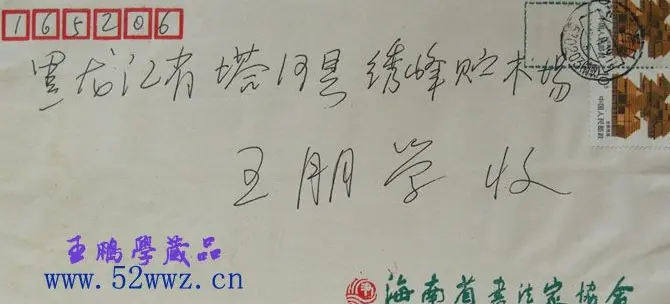 165206
黑龙江省塔河县绣峰贮木场
王朋学收
王鵬學藏品
www.52wwz.cn
海南省书法家协会
中国人民邮政